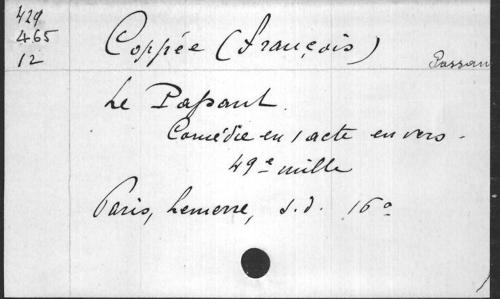 429
465
12
Coppée (François)
Passan
Le Passant.
Comédie en 1 acte en vers.
49e mille
Paris, Lemerre, s.d. 16°